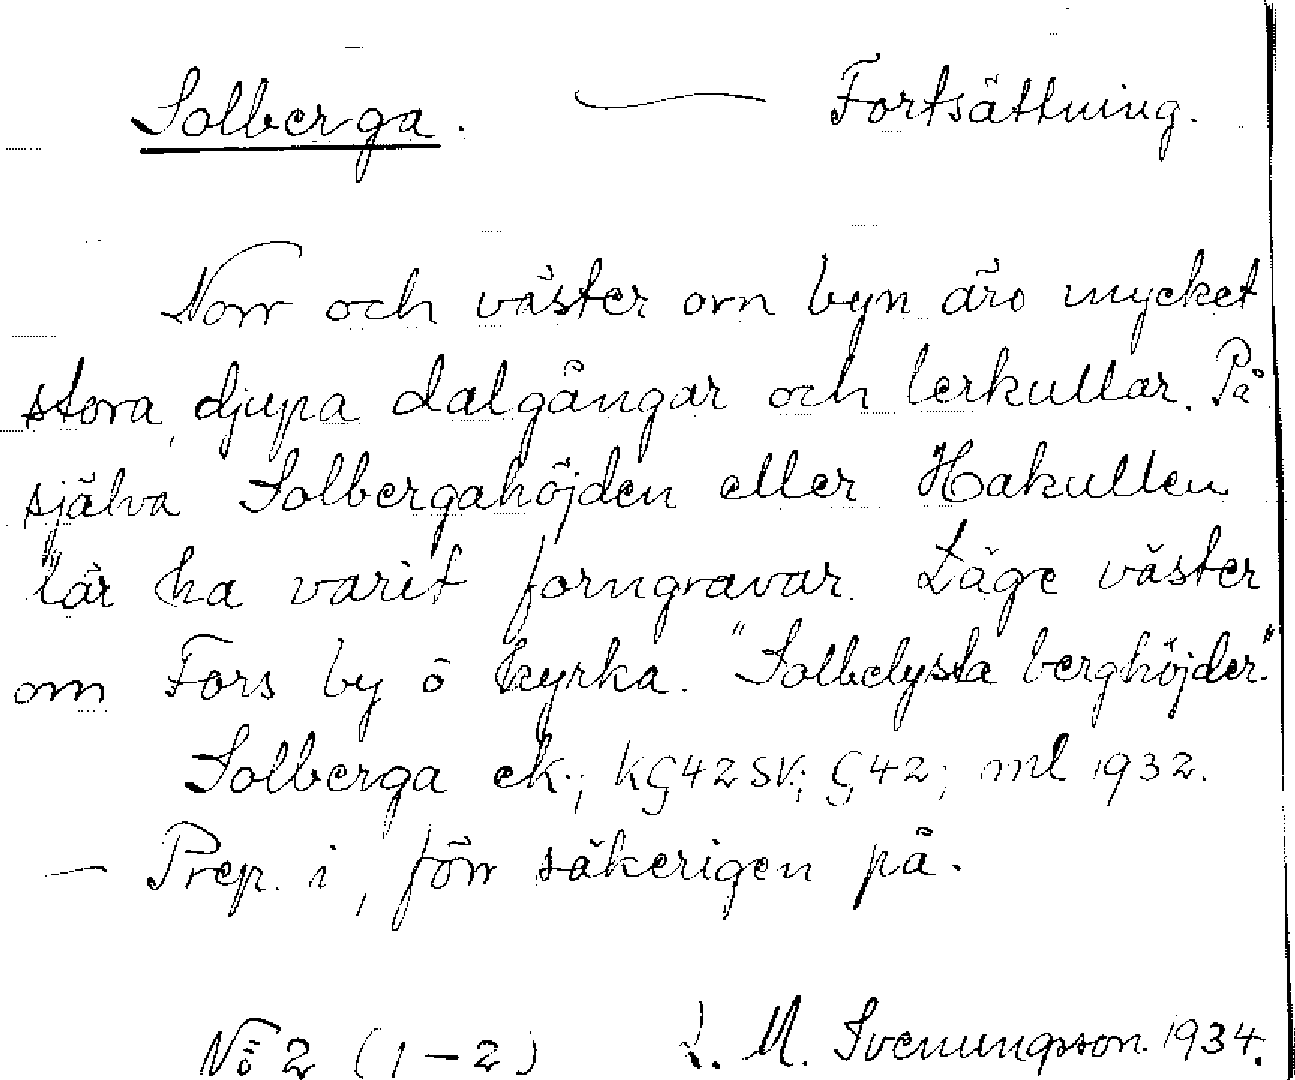 Solberga. — Fortsättning.
Norr och väster om byn äro mycket
stora, djupa dalgångar och lerkullar. På
själva Solbergahöjden eller Hakullen
lär ha varit forngravar. Läge väster
om Fors by o kyrka. "Solbelysta berghöjder."
Solberga ek.; KG42SV; G42; ml 1932.
— Prep. i, förr säkerigen på.
No 2 (1-2) L. M. Svenungsson 1934.